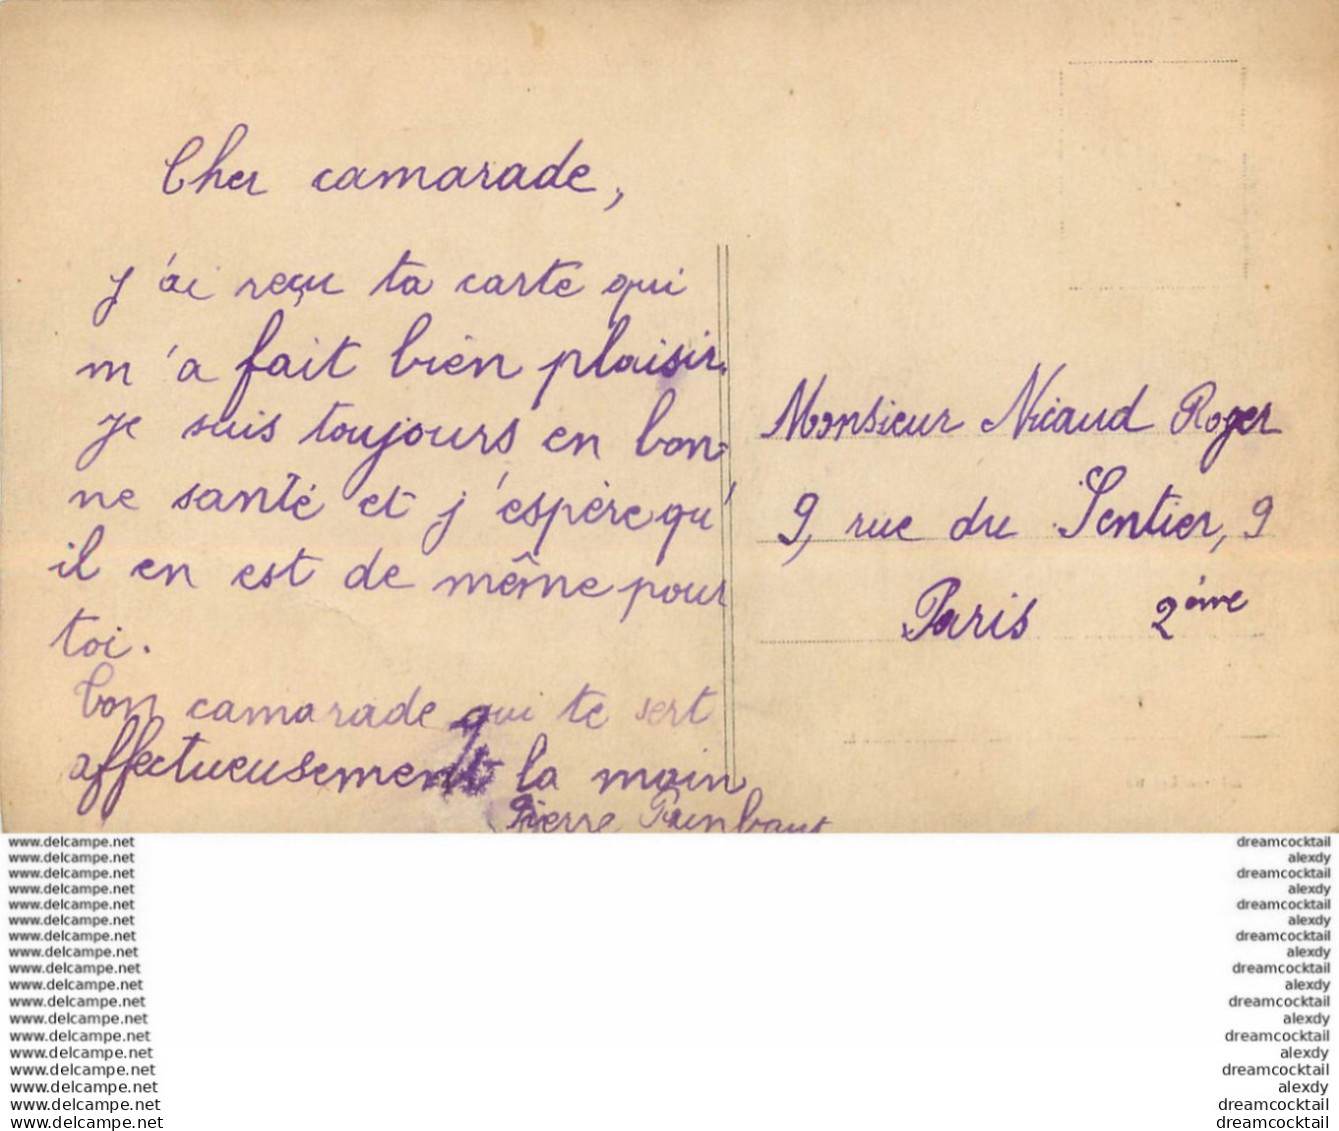 Cher camarade,
j'ai reçu ta carte qui
m'a fait bien plaisir.
je suis toujours en bon-
ne santé et j'espère qu'
il en est de même pour
toi.
bon camarade qui te sert
affectueusement la main
Pierre
Monsieur Nicaud Roger
9, rue du Sentier, 9
Paris 2ème
www.delcampe.net
www.delcampe.net
www.delcampe.net
www.delcampe.net
www.delcampe.net
www.delcampe.net
www.delcampe.net
www.delcampe.net
www.delcampe.net
www.delcampe.net
www.delcampe.net
www.delcampe.net
www.delcampe.net
www.delcampe.net
www.delcampe.net
www.delcampe.net
www.delcampe.net
www.delcampe.net
dreamcocktail
alexdy
dreamcocktail
alexdy
dreamcocktail
alexdy
dreamcocktail
alexdy
dreamcocktail
alexdy
dreamcocktail
alexdy
dreamcocktail
alexdy
dreamcocktail
alexdy
dreamcocktail
dreamcocktail